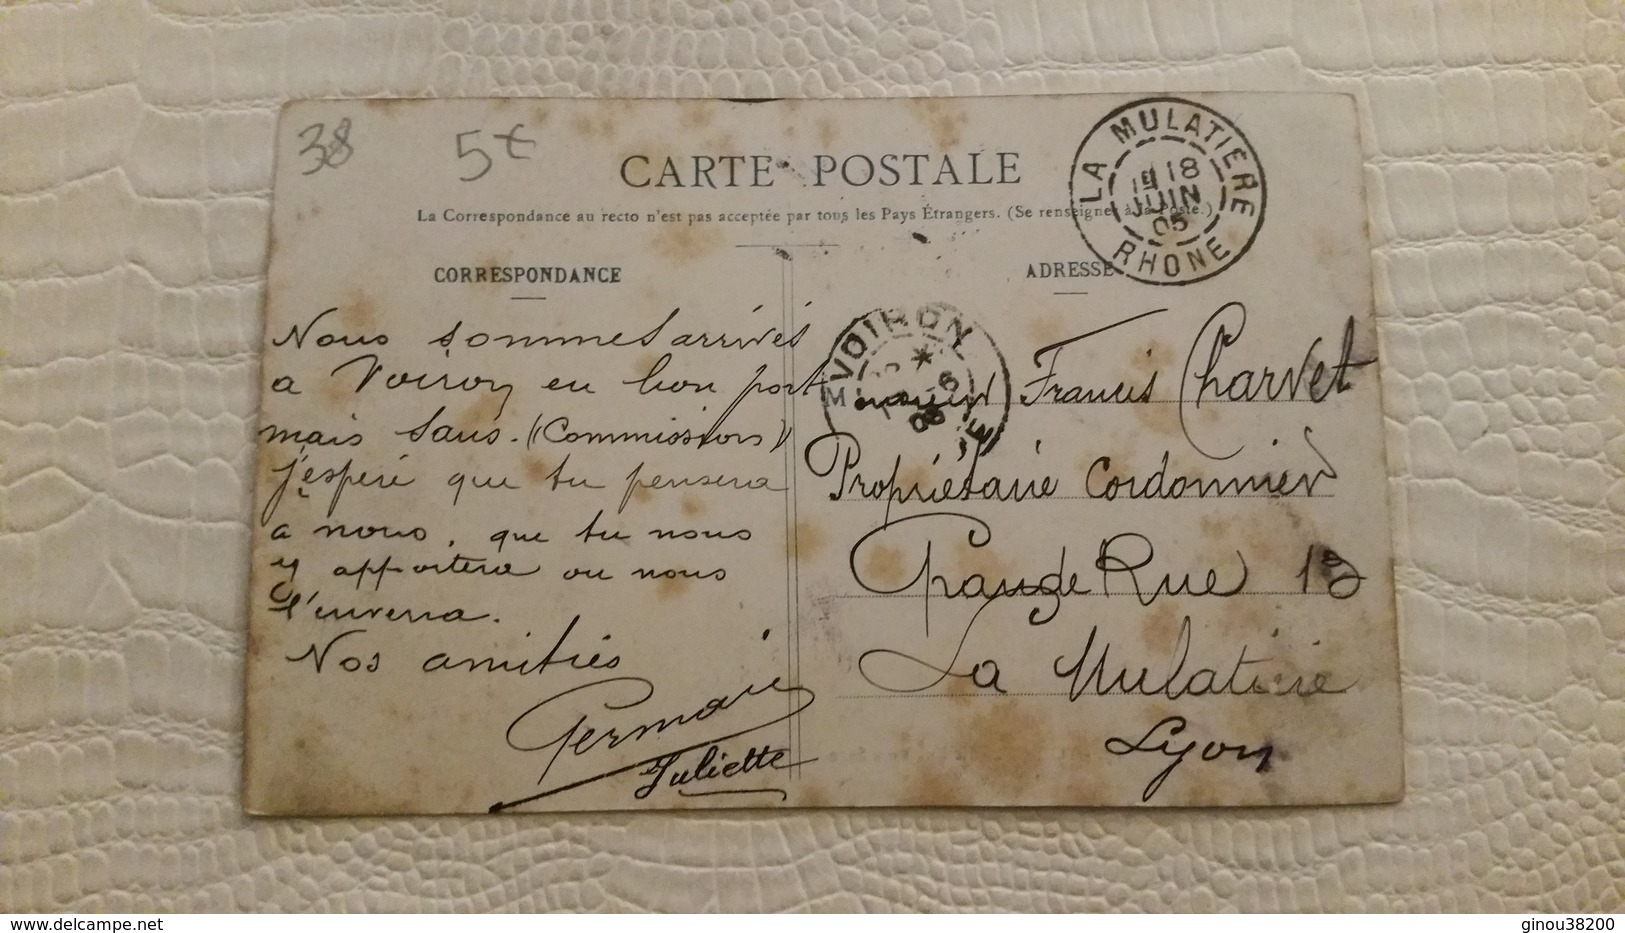 38
5€
CARTE POSTALE
La Correspondance au recto n'est pas acceptée par tous les Pays Étrangers. (Se renseigner à la Poste.)
LA MULATIÈRE
18
JUIN
05
RHONE
CORRESPONDANCE
ADRESSE
Nous sommes arrivés
a Voiron en bon port
mais sans. ((Commissions))
j'espère que tu pensera
a nous, que tu nous
y apportera ou nous
l'enverra.
Nos amitiés
Germain
Juliette
VOIRON
Monsieur Francis Charvet
Propriétaire Cordonnier
Grande Rue 13
La Mulatière
Lyon
www.delcampe.net
ginou38200